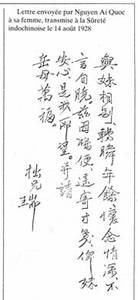 Lettre envoyée par Nguyen Ai Quoc
à sa femme, transmise à la Sûreté
indochinoise le 14 août 1928
與妹相別，轉瞬年餘，懷念情深，不
言自曉。茲因鴻便，遙寄寸箋，俾妹
安心，是我所望。並請
岳母萬福。
拙兄
瑞